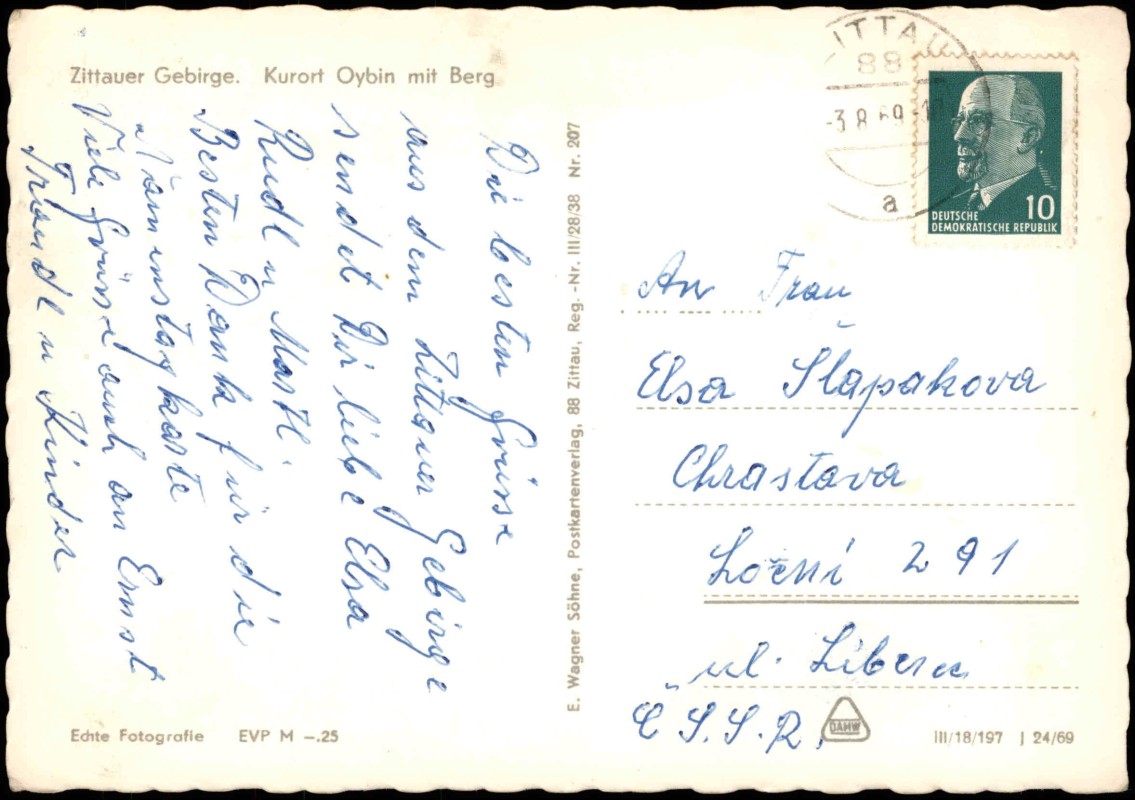 Zittauer Gebirge. Kurort Oybin mit Berg
Die besten Grüsse
aus dem Zittauer Gebirge
sendet Dir liebe Elsa
Rudl u Mastl
Besten Dank für die
Namenstagkarte
Viele Grüsse auch an Ernst
Traudl u Kinder
Echte Fotografie EVP M –.25
E. Wagner Söhne, Postkartenverlag, 88 Zittau, Reg.-Nr. III/28/38 Nr. 207
ZITTAU
88
-3.8.69-
a
DEUTSCHE
DEMOKRATISCHE REPUBLIK
10
An Frau
Elsa Šlapakova
Chrastava
Ločni 291
ul. Liberec
Č.S.S.R.
DAMW
III/18/197 J 24/69